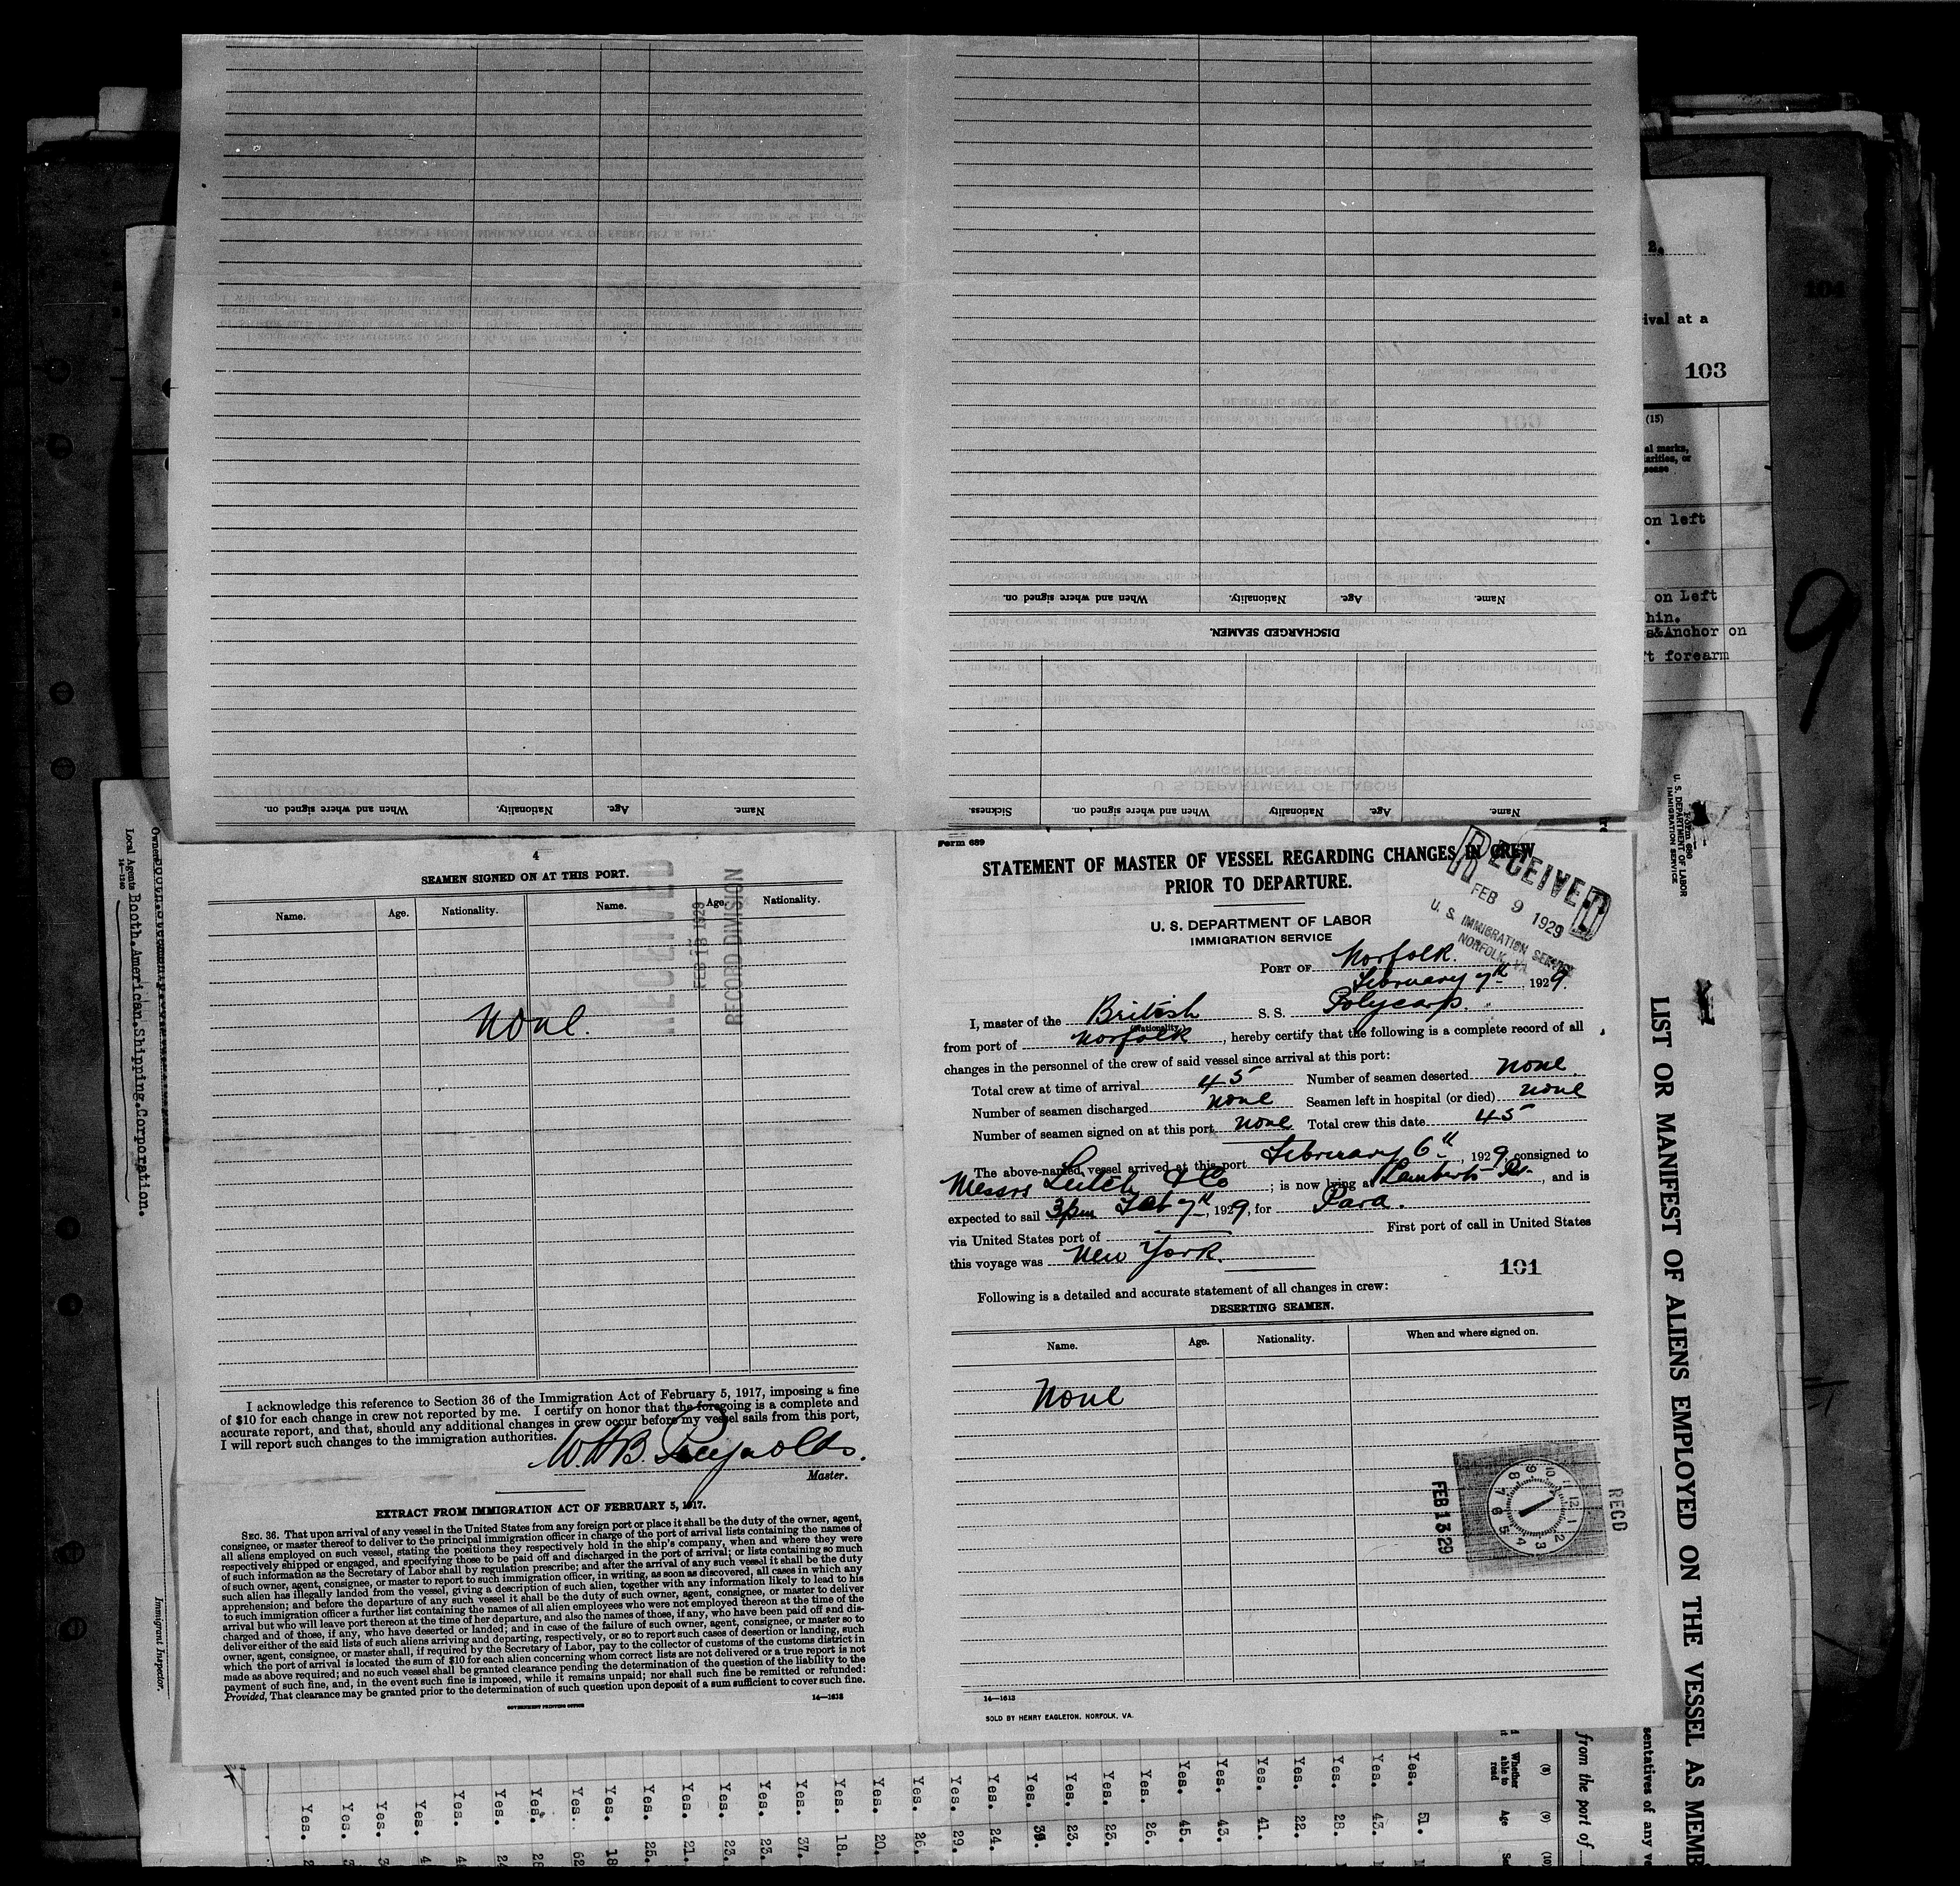 Name.
Age.
Nationality.
When and where signed on.
DISCHARGED SEAMEN.
Name.
Age.
Nationality.
When and where signed on.
Name.
Age.
Nationality.
When and where signed on.
Sickness.
4
SEAMEN SIGNED ON AT THIS PORT.
Name. Age. Nationality. Name. Age. Nationality.
None.
RECEIVED
FEB 13 1929
RECORD DIVISION
I acknowledge this reference to Section 36 of the Immigration Act of February 5, 1917, imposing a fine
of $10 for each change in crew not reported by me. I certify on honor that the foregoing is a complete and
accurate report, and that, should any additional changes in crew occur before my vessel sails from this port,
I will report such changes to the immigration authorities.
W.H.B. Reynolds.
Master.
EXTRACT FROM IMMIGRATION ACT OF FEBRUARY 5, 1917.
SEC. 36. That upon arrival of any vessel in the United States from any foreign port or place it shall be the duty of the owner, agent,
consignee, or master thereof to deliver to the principal immigration officer in charge of the port of arrival lists containing the names of
all aliens employed on such vessel, stating the positions they respectively hold in the ship's company, when and where they were
respectively shipped or engaged, and specifying those to be paid off and discharged in the port of arrival; or lists containing so much
of such information as the Secretary of Labor shall by regulation prescribe; and after the arrival of any such vessel it shall be the duty
of such owner, agent, consignee, or master to report to such immigration officer, in writing, as soon as discovered, all cases in which any
such alien has illegally landed from the vessel, giving a description of such alien, together with any information likely to lead to his
apprehension; and before the departure of any such vessel it shall be the duty of such owner, agent, consignee, or master to deliver
to such immigration officer a further list containing the names of all alien employees who were not employed thereon at the time of the
arrival but who will leave port thereon at the time of her departure, and also the names of those, if any, who have been paid off and dis-
charged and of those, if any, who have deserted or landed; and in case of the failure of such owner, agent, consignee, or master so to
deliver either of the said lists of such aliens arriving and departing, respectively, or so to report such cases of desertion or landing, such
owner, agent, consignee, or master shall, if required by the Secretary of Labor, pay to the collector of customs of the customs district in
which the port of arrival is located the sum of $10 for each alien concerning whom correct lists are not delivered or a true report is not
made as above required; and no such vessel shall be granted clearance pending the determination of the question of the liability to the
payment of such fine, and, in the event such fine is imposed, while it remains unpaid; nor shall such fine be remitted or refunded:
Provided, That clearance may be granted prior to the determination of such question upon deposit of a sum sufficient to cover such fine.
GOVERNMENT PRINTING OFFICE
14—1613
Form 689
STATEMENT OF MASTER OF VESSEL REGARDING CHANGES IN CREW
PRIOR TO DEPARTURE.
U. S. DEPARTMENT OF LABOR
IMMIGRATION SERVICE
RECEIVED
FEB 9 1929
U. S. IMMIGRATION SERVICE
NORFOLK, VA.
PORT OF Norfolk.
February 7th, 1929
I, master of the British S. S. Polycarp.
(Nationality.)
from port of Norfolk, hereby certify that the following is a complete record of all
changes in the personnel of the crew of said vessel since arrival at this port:
Total crew at time of arrival 45 Number of seamen deserted none.
Number of seamen discharged none Seamen left in hospital (or died) none
Number of seamen signed on at this port none Total crew this date 45
The above-named vessel arrived at this port February 6th, 1929, consigned to
Messrs Leitch & Co; is now lying at Lamberts Pt., and is
expected to sail 3pm Feb 7th, 1929, for Para.
via United States port of First port of call in United States
this voyage was New York.
101
Following is a detailed and accurate statement of all changes in crew:
DESERTING SEAMEN.
Name. Age. Nationality. When and where signed on.
None
FEB 13 29
RECD
14—1613
SOLD BY HENRY EAGLETON, NORFOLK, VA.
2.
104
ival at a
103
(15)
al marks,
larities, or
sease
on left
on Left
hin.
s&Anchor on
t forearm
9
Form 680
U. S. DEPARTMENT OF LABOR
IMMIGRATION SERVICE
LIST OR MANIFEST OF ALIENS EMPLOYED ON THE VESSEL AS MEMB
sentatives of any ve
from the port of
Local Agents Booth American Shipping Corporation.
14—1240
Immigrant Inspector.
(8) (9) (10)
Whether able to read
Age
Yes. 51.
Yes. 43.
Yes. 28.
Yes. 22.
Yes. 41.
Yes. 43.
Yes. 45.
Yes. 26.
Yes. 23.
Yes. 23.
Yes. 39.
Yes. 24.
Yes. 29.
Yes. 26.
Yes. 20.
Yes. 18.
Yes. 37.
Yes. 23.
Yes. 23.
Yes. 21.
Yes. 25.
Yes. 18
Yes. 62
Yes. 28
Yes.
Yes.
Yes.
Yes.
Yes.
Yes.